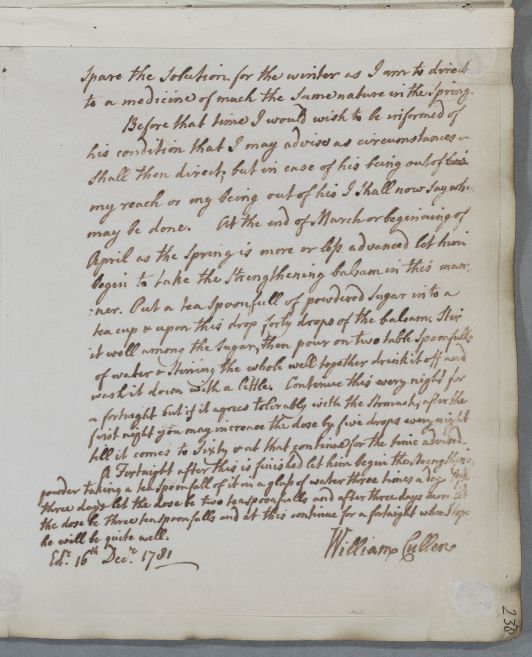 Spare the Solution for the winter as I am to direct
to a medicine of much the Same nature in the Spring.
Before that time I would wish to be informed of
his condition that I may advise as circumstances
shall then direct, but in case of his being out of
my reach or my being out of his I Shall now Say wh
may be done. At the end of March or beginning of
April as the Spring is more or less advanced let him
begin to take the Strengthening balsam in this man:
:ner. Put a tea Spoonfull of powdered Sugar into a
tea cup & upon this drop forty drops of the balsam. Stir
it well among the Sugar, then pour on two table Spoonfulls
of water & Stirring the whole well together drink it off and
wash it down with a little. Continue this every night for
a fortnight but if it agrees tolerably with the Stomach, after the
first night you may increase the dose by five drops every night
till it comes to Sixty & at that continue for the time advised.
A Fortnight after this is finished let him begin the Strengthening
powder taking a tea Spoonfull of it in a glass of water three times a day
three days let the dose be two teaspoonfulls and after three days more let
the dose be three tea Spoonfulls and at this continue for a fortnight when I hope
he will be quite well.
William Cullen
Edr. 16th Decr. 1781